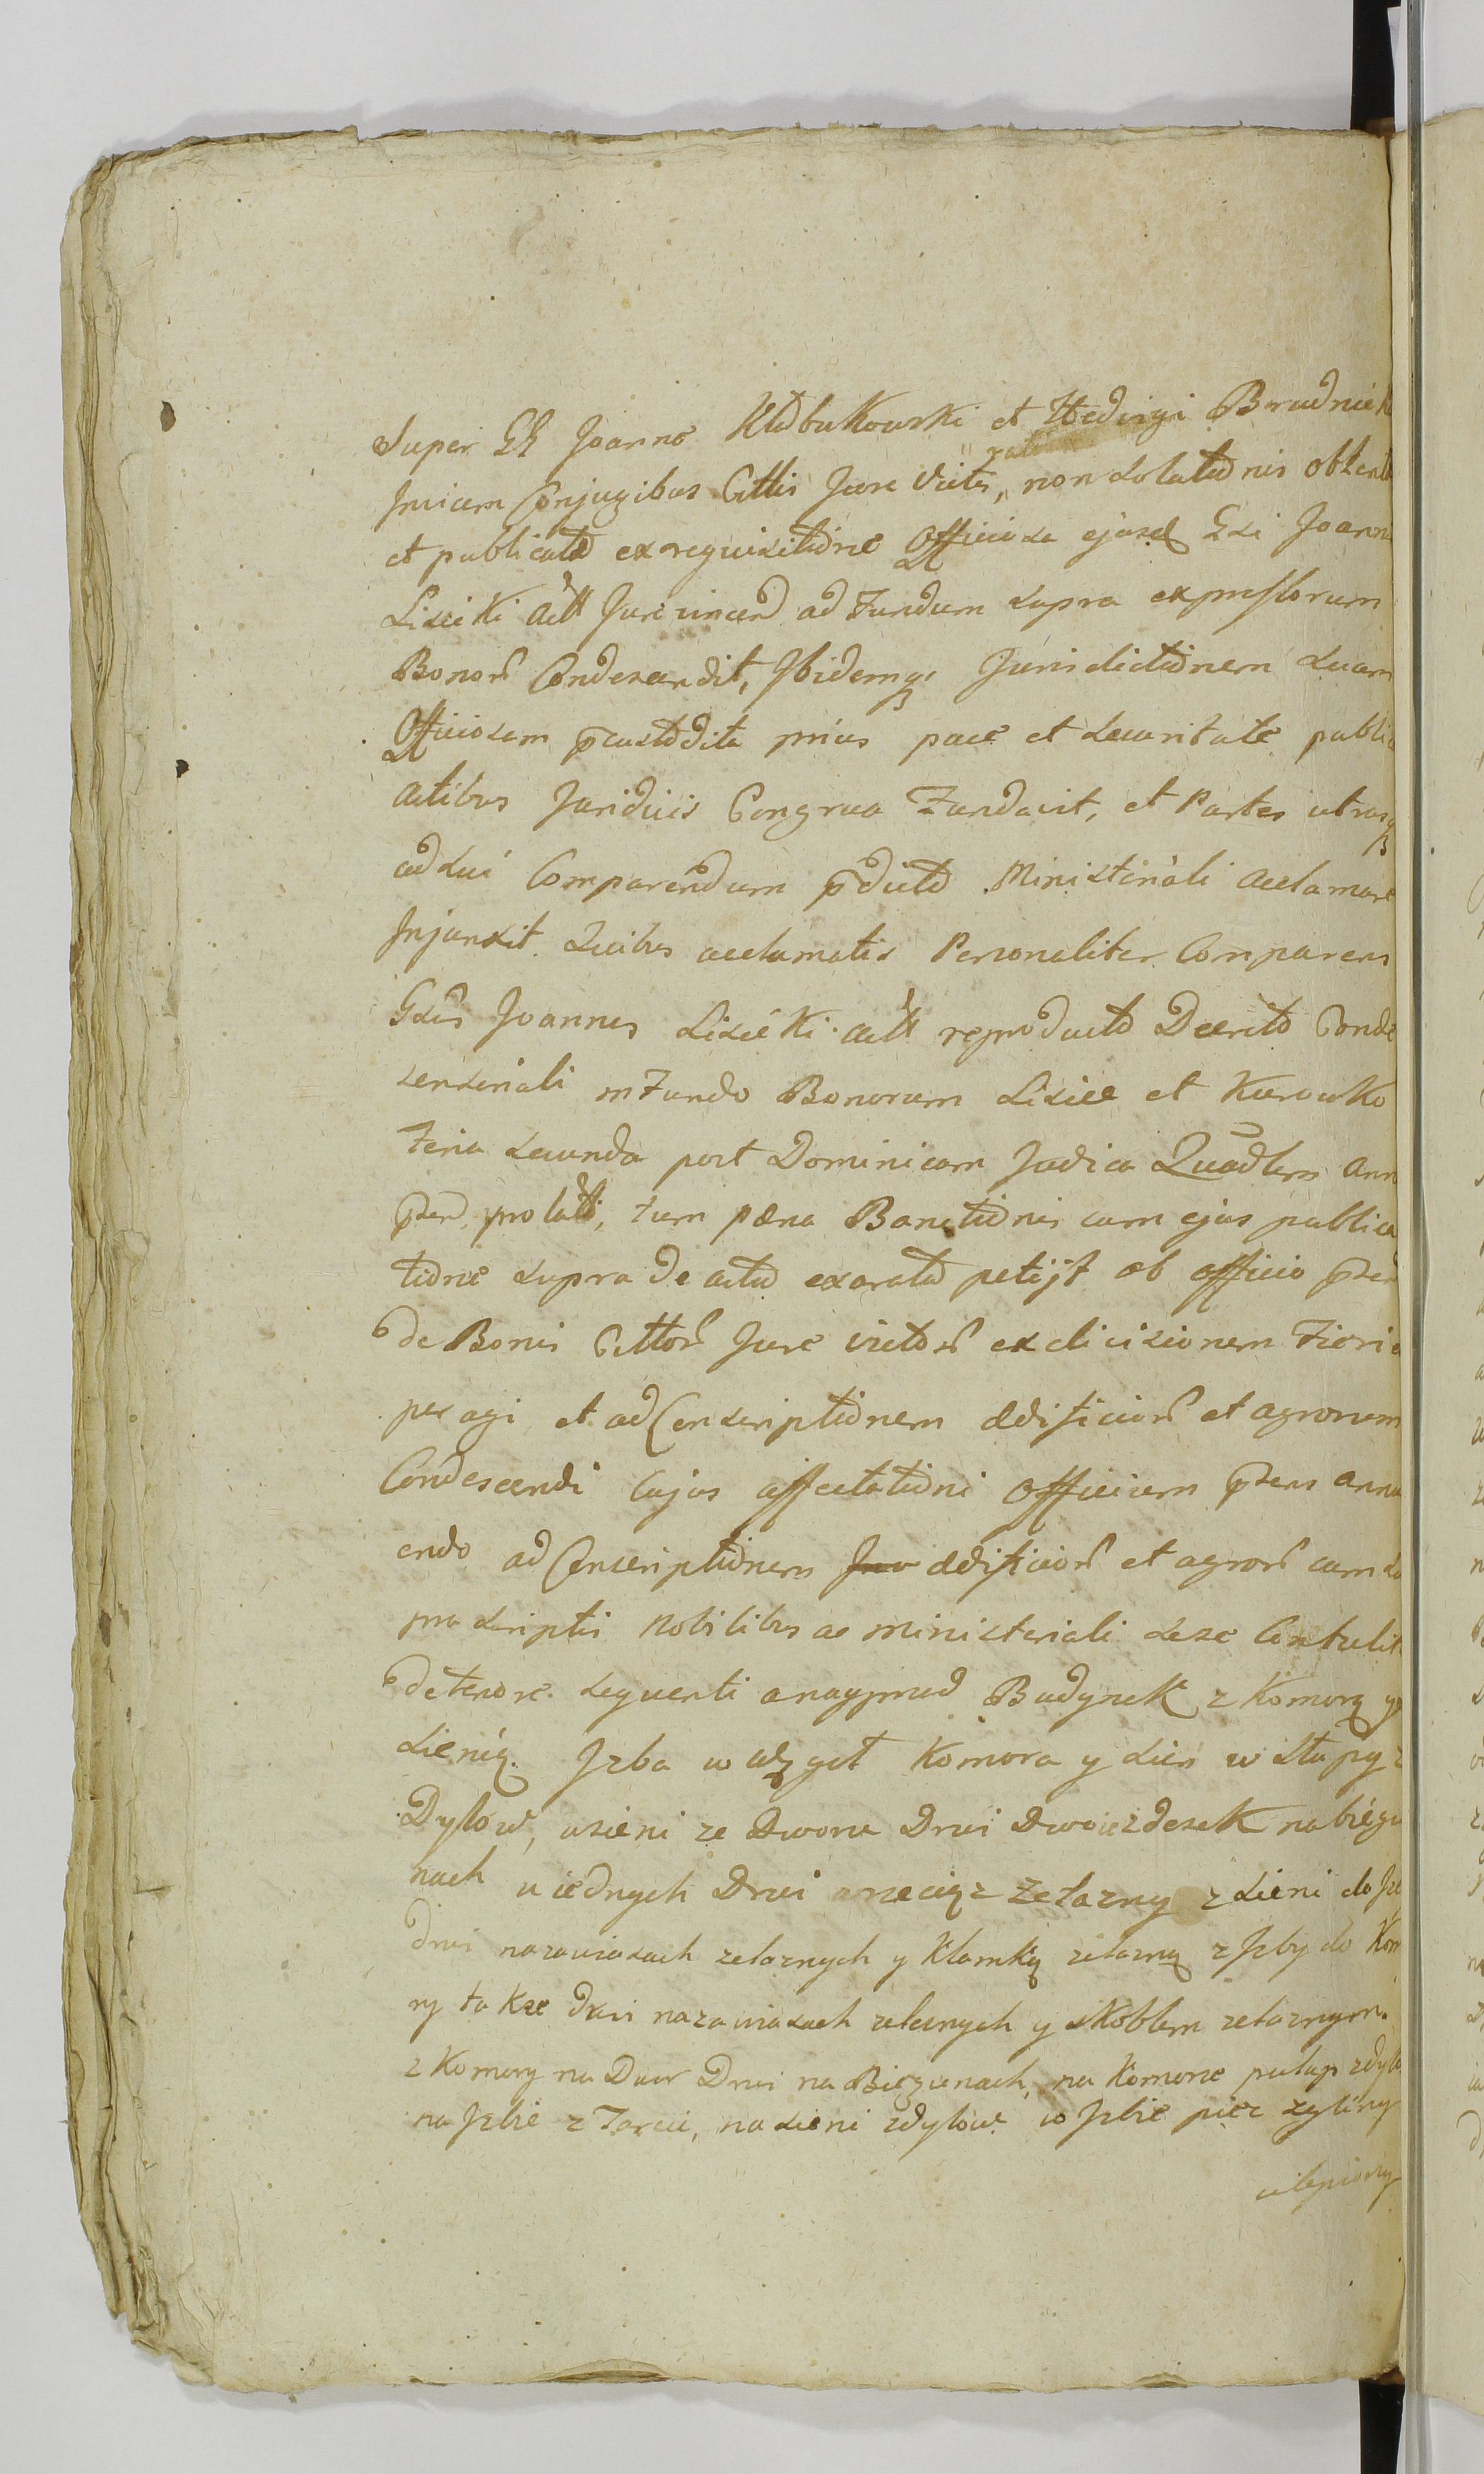 Super GG Joanne Kłobukowski et Hedvigi Brudnick
Invicem Conjugibus Cittis Jure victis „ non solutionis obtent
ratione
et publicato ex requisitione Officiose ejusd Gsi Joann
Lisicki act Jure vincen ad Fundum supra expressorum
Bonor Condescendit, Ibidemq Jurisdictionem suam
Officiosam pcustodita prius pace et securitate public
actibus Juridicis Congrua Fundavit, et Partes utrasq
ad sui Comparendum pdicto Ministeriali acclamare
Injunxit. Quibus acclamatis Personaliter Comparens
Gsus Joannes Lisicki act reproducto Decreto Conde
scensoriali in Fundo Bonorum Lisice et Kurowko
Feria secunda post Dominicam Judica Quadlem ann
psen prolati, tum pæna Banitionis cum ejus publica
tione supra de actu exarato petijt ab officio psen
de Bonis Cittor Jure victor exdivisionem Fieri
peragi et ad Conscriptionem ædificior et agrorum
Condescendi Cujus affectationi Officium psens annu
endo ad Conscriptionem ædificior et agror cum su
pra scriptis Nobilibus ac ministeriali sese Contulit
de tenore sequenti a nayprzud Budynek z Komorą y
sienią. Jzba w węgeł Komora y sień w słupy z
Dylów, w sieni ze Dworu Drwi Dwoie z desek na biegu
nach u iednych Drwi wrzeciąz Zelazny z sieni do Jz
drwi na zawiasach zelaznych y Klamką zelazną z Jzby do Kom
ry takze drwi na zawiasach zelaznych y skoblem zelaznym.
z Komory na Dwor Drwi na Biegunach, na Komorze pułap z dylo
na Jzbie z Tarcic, na sieni z dylów w Jzbie piec z gliny
ulepiony